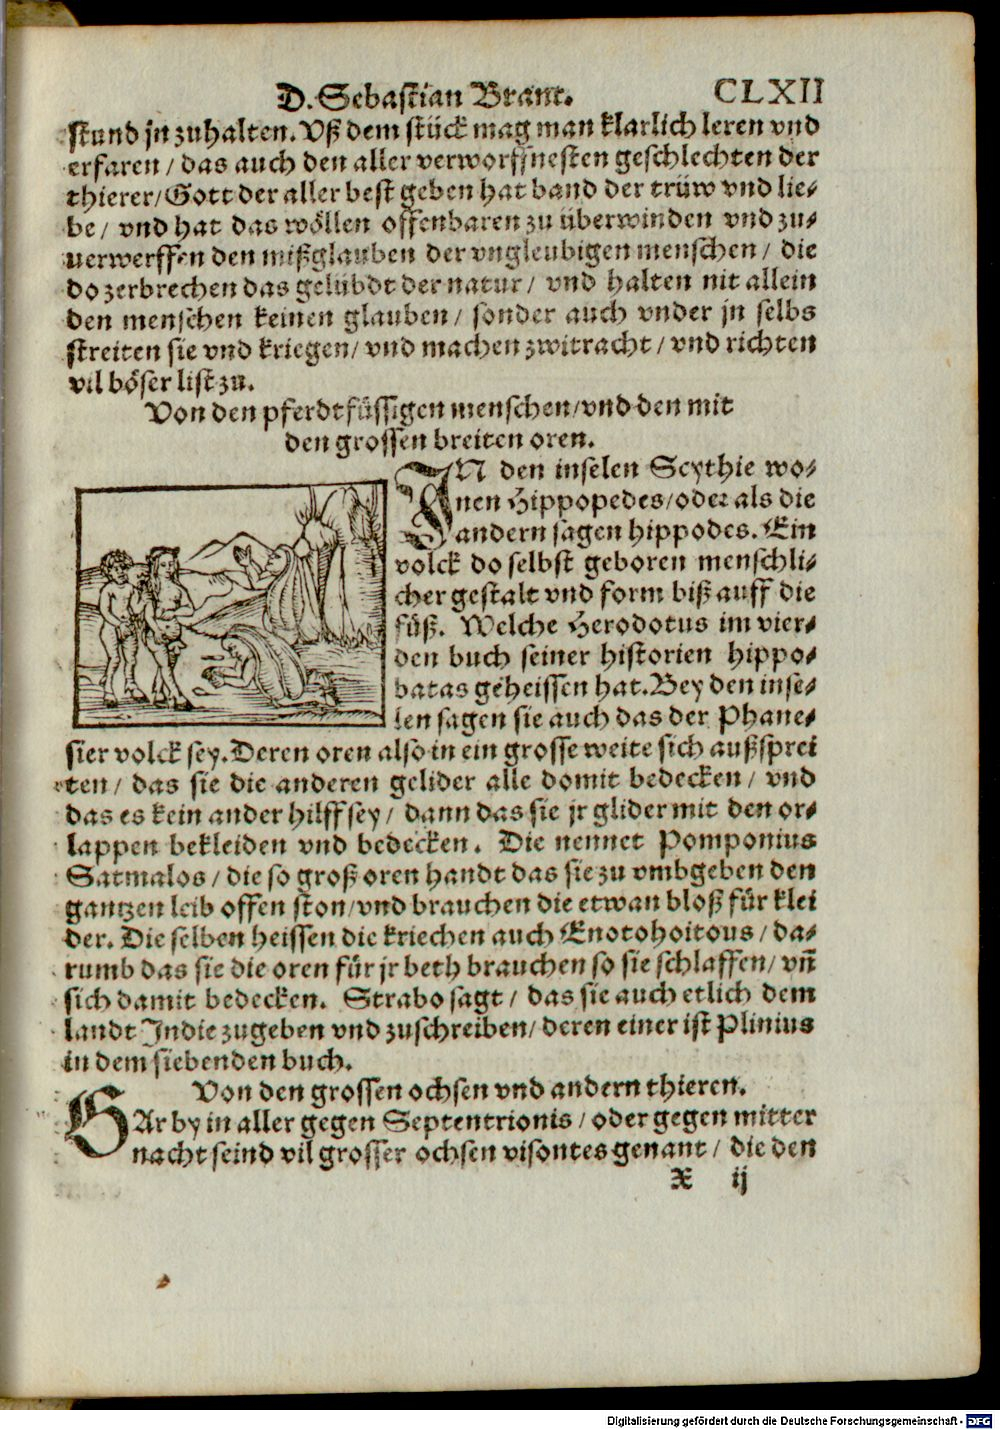 D. Sebastian Brant. CLXII
stund jn zuhalten. Vß dem stück mag man klarlich leren vnd
erfaren / das auch den aller verworffnesten geschlechten der
thierer / Gott der aller best geben hat band der trüw vnd lie⸗
be / vnd hat das wöllen offenbaren zu überwinden vnd zu⸗
uerwerffen den mißglauben der vngleubigen menschen / die
do zerbrechen das gelübdt der natur / vnd halten nit allein
den menschen keinen glauben / sonder auch vnder jn selbs
streiten sie vnd kriegen / vnd machen zwitracht / vnd richten
vil böser list zu.
Von den pferdtfüssigen menschen / vnd den mit
den grossen breiten oren.
IN den inselen Scythie wo⸗
nen Hippopedes / oder als die
andern sagen hippodes. Ein
volck do selbst geboren menschli⸗
cher gestalt vnd form biß auff die
füß. Welche Herodotus im vier⸗
den buch seiner historien hippo⸗
batas geheissen hat. Bey den inse⸗
len sagen sie auch das der Phane⸗
sier volck sey. Deren oren also in ein grosse weite sich außsprei
ten / das sie die anderen gelider alle domit bedecken / vnd
das es kein ander hilff sey / dann das sie jr glider mit den or⸗
lappen bekleiden vnd bedecken. Die nennet Pomponius
Satmalos / die so groß oren handt das sie zu vmbgeben den
gantzen leib offen ston / vnd brauchen die etwan bloß für klei
der. Die selben heissen die kriechen auch Enotohoitous / da⸗
rumb das sie die oren für jr beth brauchen so sie schlaffen / vñ
sich damit bedecken. Strabo sagt / das sie auch etlich dem
landt Indie zugeben vnd zuschreiben / deren einer ist Plinius
in dem siebenden buch.
Von den grossen ochsen vnd andern thieren.
GAr by in aller gegen Septentrionis / oder gegen mitter
nacht seind vil grosser ochsen visontes genant / die den
X ij
Digitalisierung gefördert durch die Deutsche Forschungsgemeinschaft - DFG